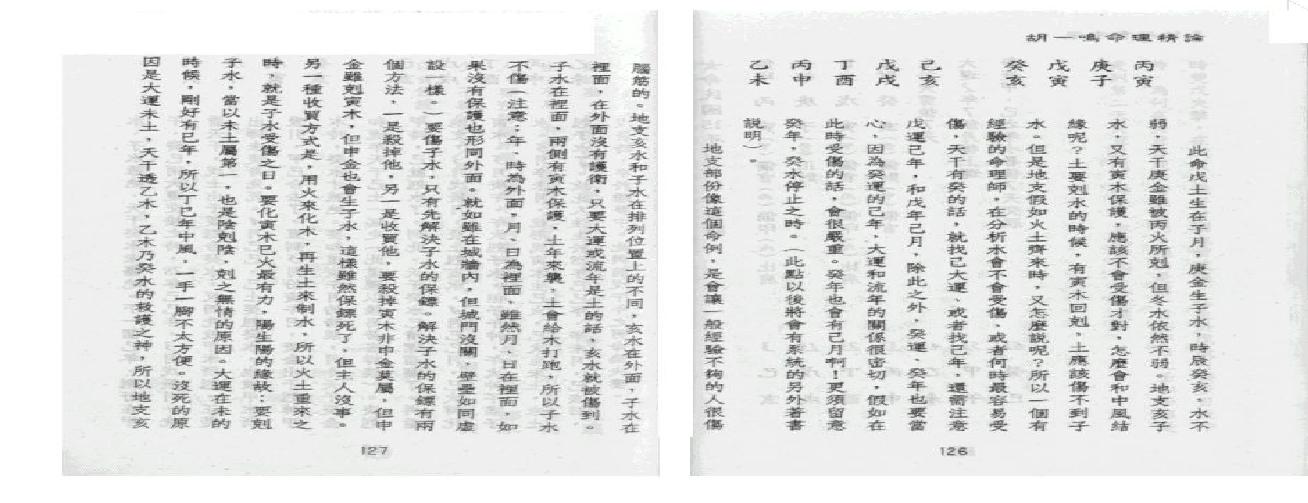 胡一鳴命理精論
丙寅
庚子
戊寅
癸亥
己亥
戊戌
丁酉
丙申
乙未
此命戊土生在子月，庚金生子水，時辰癸亥，水不
弱。天干庚金雖被丙火所剋，但冬水依然不弱。地支亥子
水，又有寅木保護，應該不會受傷才對，怎麼會和中風結
緣呢？土要剋水的時候，有寅木回剋。土應該傷不到子
水。但是地支假如火土齊來時，又怎麼說呢？所以一個有
經驗的命理師，在分析水會不會受傷、或者何時最容易受
傷，天干有癸的話，就找己大運、或者找己年，還需注意
戊運己年，和戊年己月，除此之外，癸運、癸年也要當
心，因為癸運的己年，大運和流年的關係很密切，假如在
此時受傷的話，會很嚴重。癸年也會有己月啊！更須留意
癸年，癸水停止之時。（此點以後將會有系統的另外著書
說明）。
地支部份像這個命例，是會讓一般經驗不夠的人很傷
126
腦筋的。地支亥水和子水在排列位置上的不同，亥水在外面，子水在
裡面，在外面沒有護衛，只要大運或流年是土的話，亥水就被傷到。
子水在裡面，兩側有寅木保護，土年來襲，土會給木打跑，所以子水
不傷（注意：年、時為外面，月、日為裡面，雖然月、日在裡面，如
果沒有保護也形同外面。就如雖在城牆內，但城門沒關、壁壘如同虛
設一樣。）要傷子水，只有先解決子水的保鏢。解決子水的保鏢有兩
個方法，一是殺掉他，另一是收買他，要殺掉寅木非申金莫屬，但申
金雖剋寅木，但申金也會生子水，這樣雖然保鏢死了，但主人沒事。
另一種收買方式是，用火來化木，再生土來制水，所以火土重來之
時，就是子水受傷之日。要化寅木巳火最有力，陽生陽的緣故；要剋
子水，當以未土屬第一，也是陰剋陰，剋之無情的原因。大運在未的
時候，剛好有巳年，所以丁巳年中風，一手一腳不太方便。沒死的原
因是大運未土，天干透乙木，乙木乃癸水的救護之神，所以地支亥
127